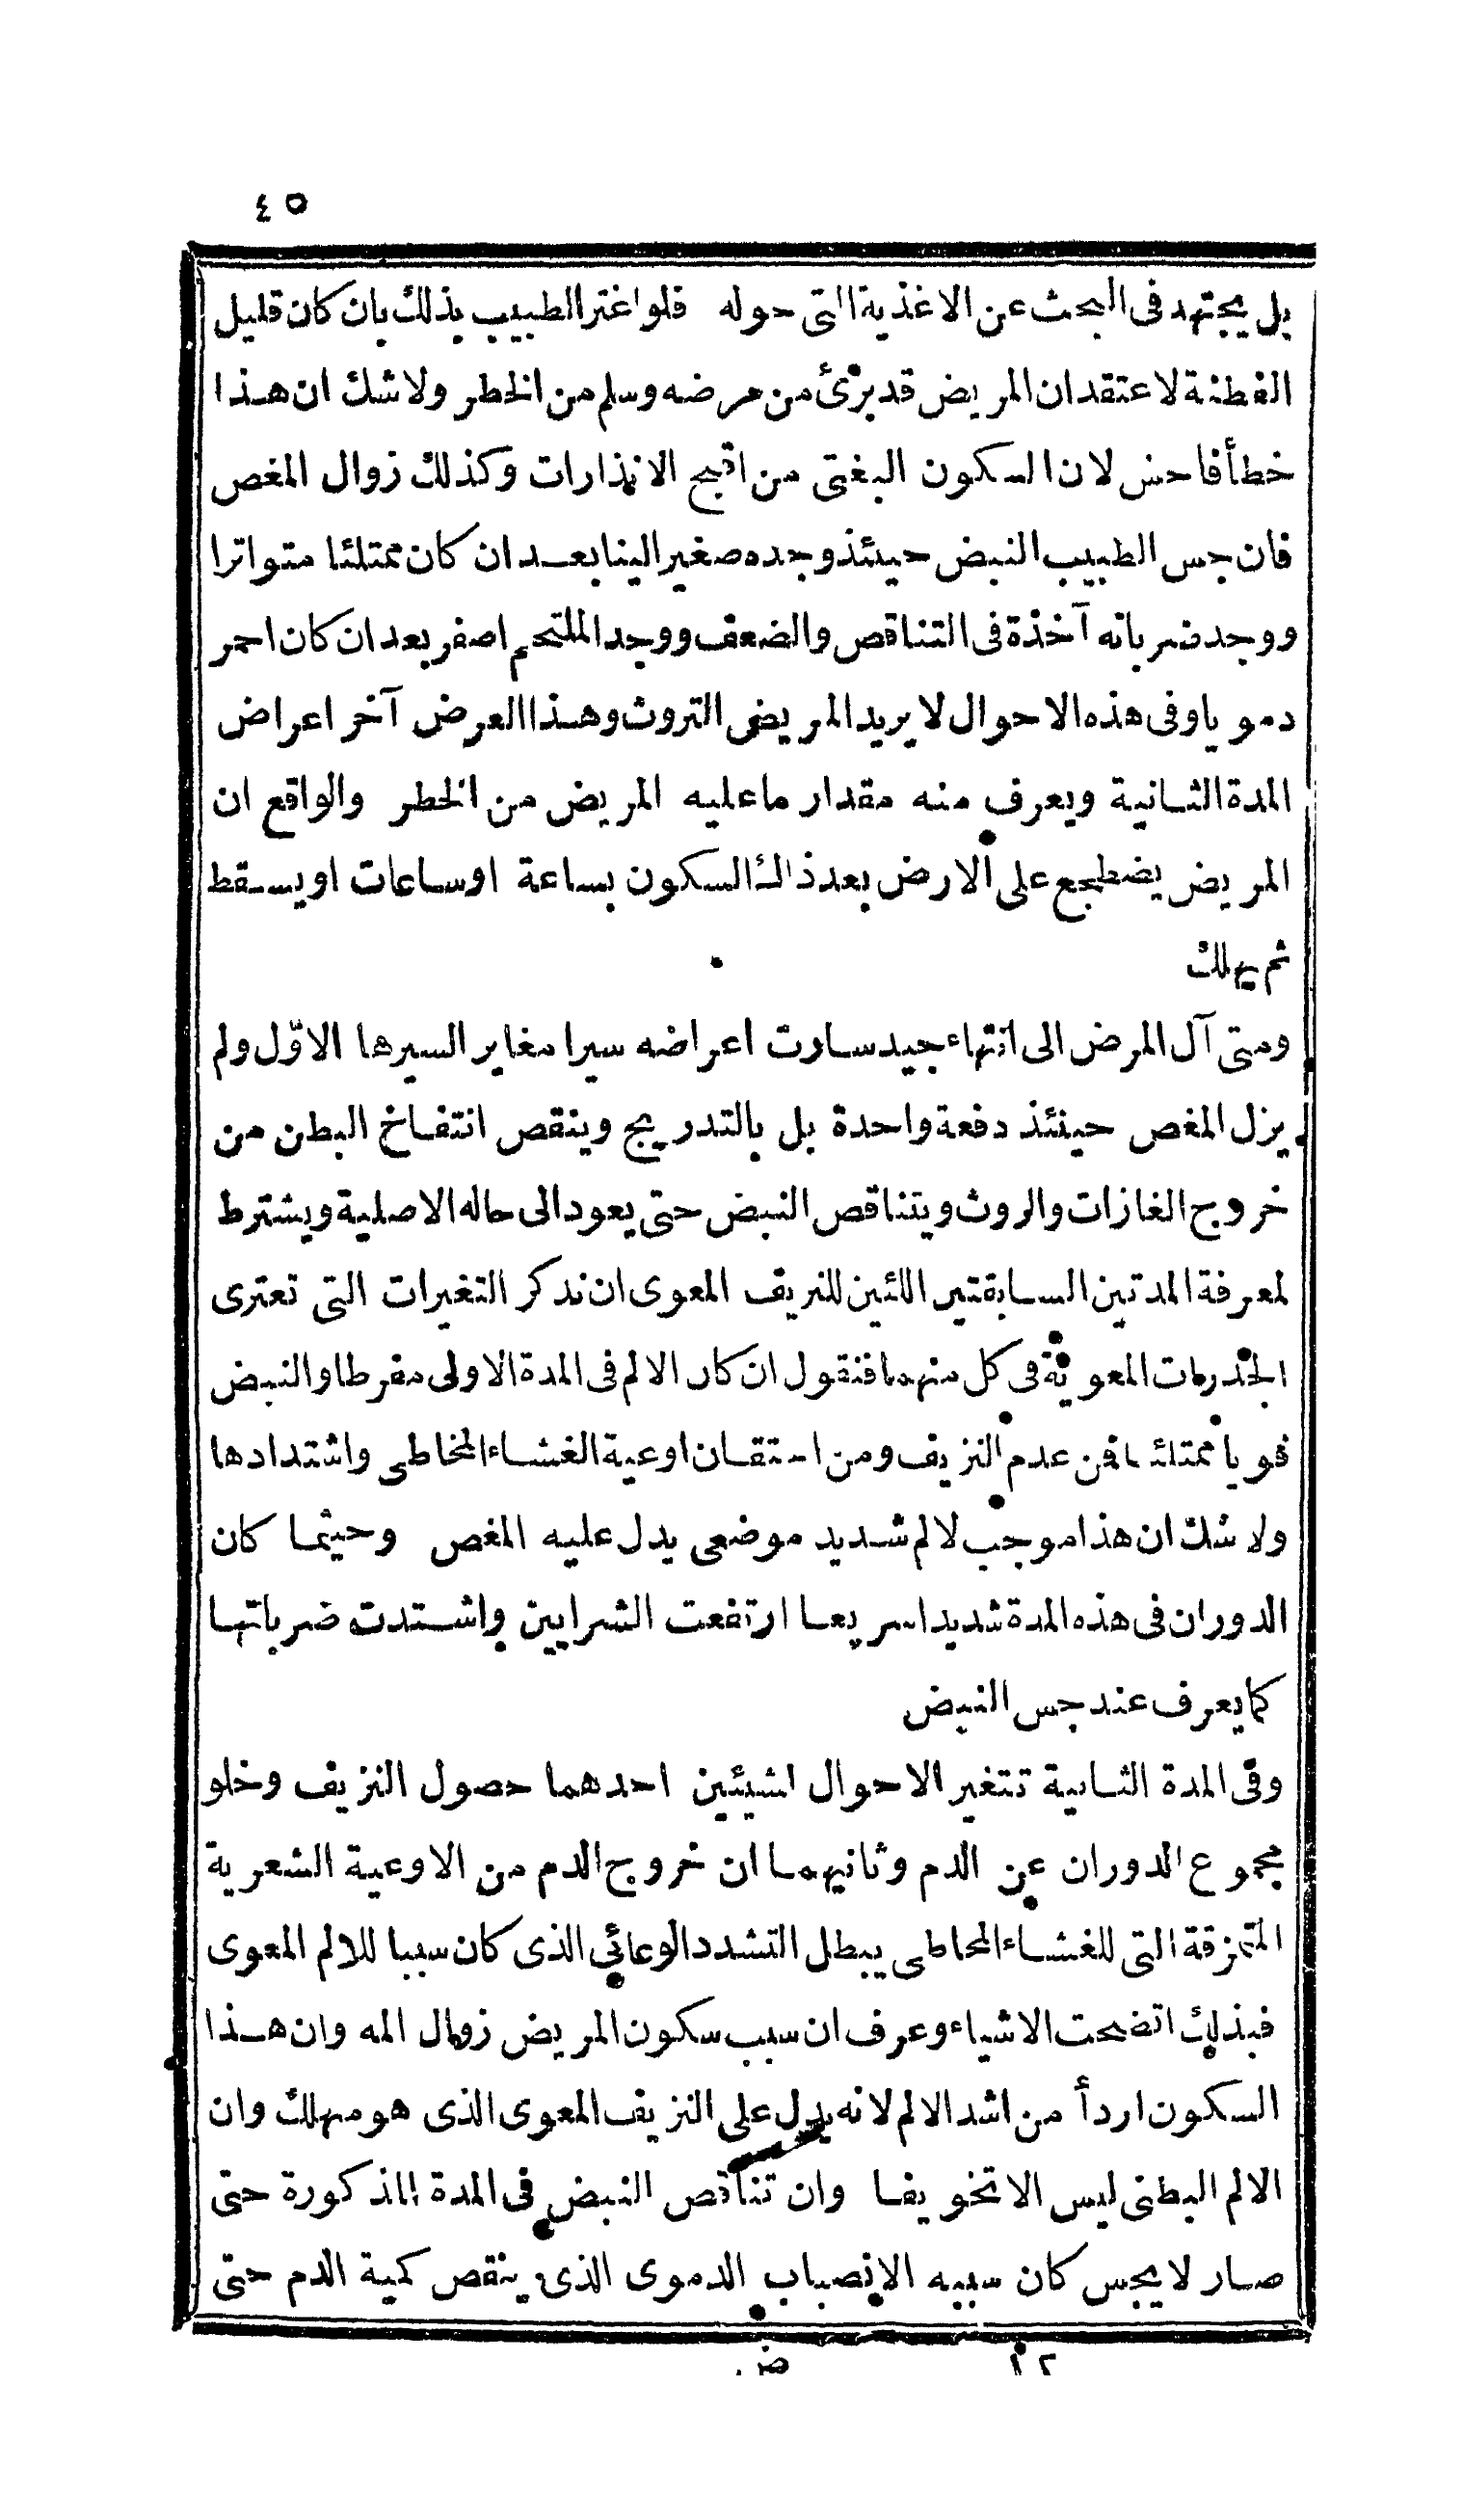 ٤٥
بل يجتهد فى البحث عن الاغذية التى حوله فلو اغتر الطبيب بذلك بان كان قليل
الفطنة لاعتقد ان المريض قد برئ من مرضه وسلم من الخطر ولاشك ان هذا
خطأ فاحش لان السكون البغتى من اقبح الانذارات وكذلك زوال المغص
فان جس الطبيب النبض حينئذ وجده صغيرا لينا بعد ان كان ممتلئا متواترا
ووجد ضرباته آخذة فى التناقص والضعف ووجد الملتحم اصفر بعد ان كان احمر
دمويا وفى هذه الاحوال لا يريد المريض التروث وهذا العرض آخر اعراض
المدة الثانية ويعرف منه مقدار ما عليه المريض من الخطر والواقع ان
المريض يضطجع على الارض بعد ذلك السكون بساعة او ساعات او يسقط
ثم يهلك
ومتى آل المرض الى انتهاء جيد سارت اعراضه سيرا مغاير السيرها الاوّل ولم
يزل المغص حينئذ دفعة واحدة بل بالتدريج وينقص انتفاخ البطن من
خروج الغازات والروث ويتناقص النبض حتى يعود الى حاله الاصلية ويشترط
لمعرفة المدتين السابقتين اللتين للنزيف المعوى ان نذكر التغيرات التى تعترى
الجذريات المعوية فى كل منهما فنقول ان كان الالم فى المدة الاولى مفرطا والنبض
قويا ممتلئا فمن عدم النزيف ومن احتقان اوعية الغشاء المخاطى واشتدادها
ولا شك ان هذا موجب لالم شديد موضعى يدل عليه المغص وحيثما كان
الدوران فى هذه المدة شديدا سريعا ارتفعت الشرايين واشتدت ضرباتها
كما يعرف عند جس النبض
وفى المدة الثانية تتغير الاحوال لشيئين احدهما حصول النزيف وخلو
مجموع الدوران عن الدم وثانيهما ان خروج الدم من الاوعية الشعرية
المتمزقة التى للغشاء المخاطى يبطل التشدد الوعائى الذى كان سببا للالم المعوى
فبذلك اتضحت الاشياء وعرف ان سبب سكون المريض زوال المه وان هذا
السكون اردأ من اشد الالم لانه يدل على النزيف المعوى الذى هو مهلك وان
الالم البطنى ليس الا تخويفا وان تناقص النبض فى المدة المذكورة حتى
صار لا يحس كان سببه الانصباب الدموى الذى ينقص كمية الدم حتى
١٢ ض